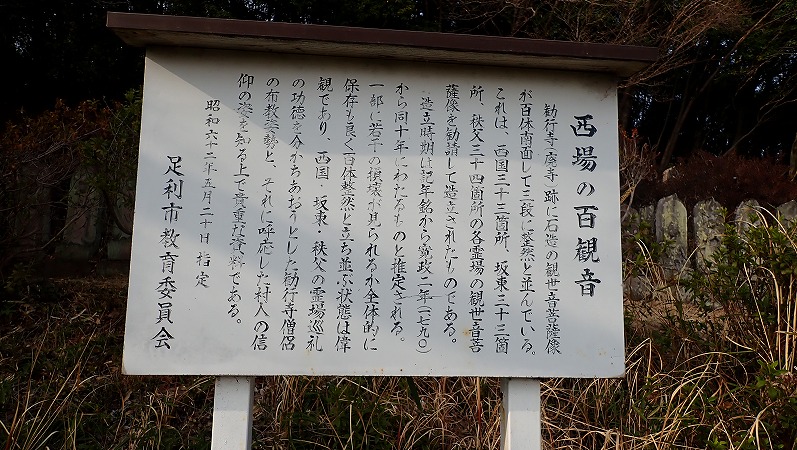 西場の百観音
勧行寺(廃寺)跡に石造の観世音菩薩像
が百体南面して三段に整然と並んでいる。
これは、西国三十三箇所、坂東三十三箇
所、秩父三十四箇所の各霊場の観世音菩
薩像を勧請して造立されたものである。
造立時期は記年銘から寛政二年(一七九〇)
から同十年にわたるものと推定される。
一部に若干の損壊が見られるが全体的に
保存も良く百体整然と立ち並ぶ状態は偉
観であり、西国・坂東・秩父の霊場巡礼
の功徳を分かちあおうとした勧行寺僧侶
の布教姿勢と、それに呼応した村人の信
仰の姿を知る上で貴重な資料である。
昭和六十二年五月二十日 指定
足利市教育委員会